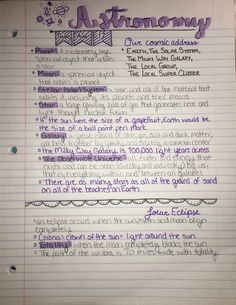 Astronomy
Our cosmic address
• Earth, The Solar System,
The Milky Way Galaxy,
The Local Group,
The Local Super Cluster
• Planet: A moderately large
spherical object that orbits
a star
• Moon: a spherical object
that orbits a planet
• Stellar (solar) System: a star and all of the material that
orbits it, including its planets and their moons
• Star: a large glowing ball of gas that generates heat and
light through nuclear fusion
• If the sun were the size of a grapefruit, Earth would be
the size of a ball point pen mark
• Galaxy: a great island of stars, gas, dust and dark matter,
all held together by gravity and orbiting a common center
• the Milky Way Galaxy is 100,000 light years across
• The Observable Universe: all matter and energy that
exists and can be seen
that is, everything within and between all galaxies
• There are as many stars as all of the grains of sand
on all of the beaches on Earth
Solar Eclipse
• an eclipse occurs when the sun, earth and moon align
completely
• Corona = crown of the sun = light around the sun
• Totality = when the moon completely blocks the sun
• The path of the umbra is 70 miles wide with totality